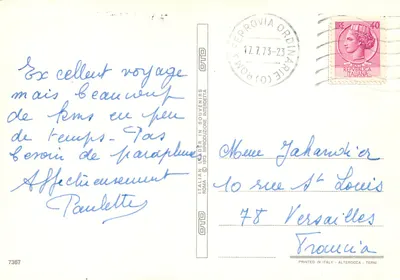 Excellent voyage
mais beaucoup
de kms en peu
de temps - Pas
besoin de parapluie
Affectueusement
Paulette
7387
ITALIAN
SOUVENIRS
ROMA
FERROVIA ORDINARIE (O) ROMA
17.7.73-23
LIRE 40
Mme
10 rue St Louis
78 Versailles
Francia
PRINTED IN ITALY - ALTEROCCA - TERNI